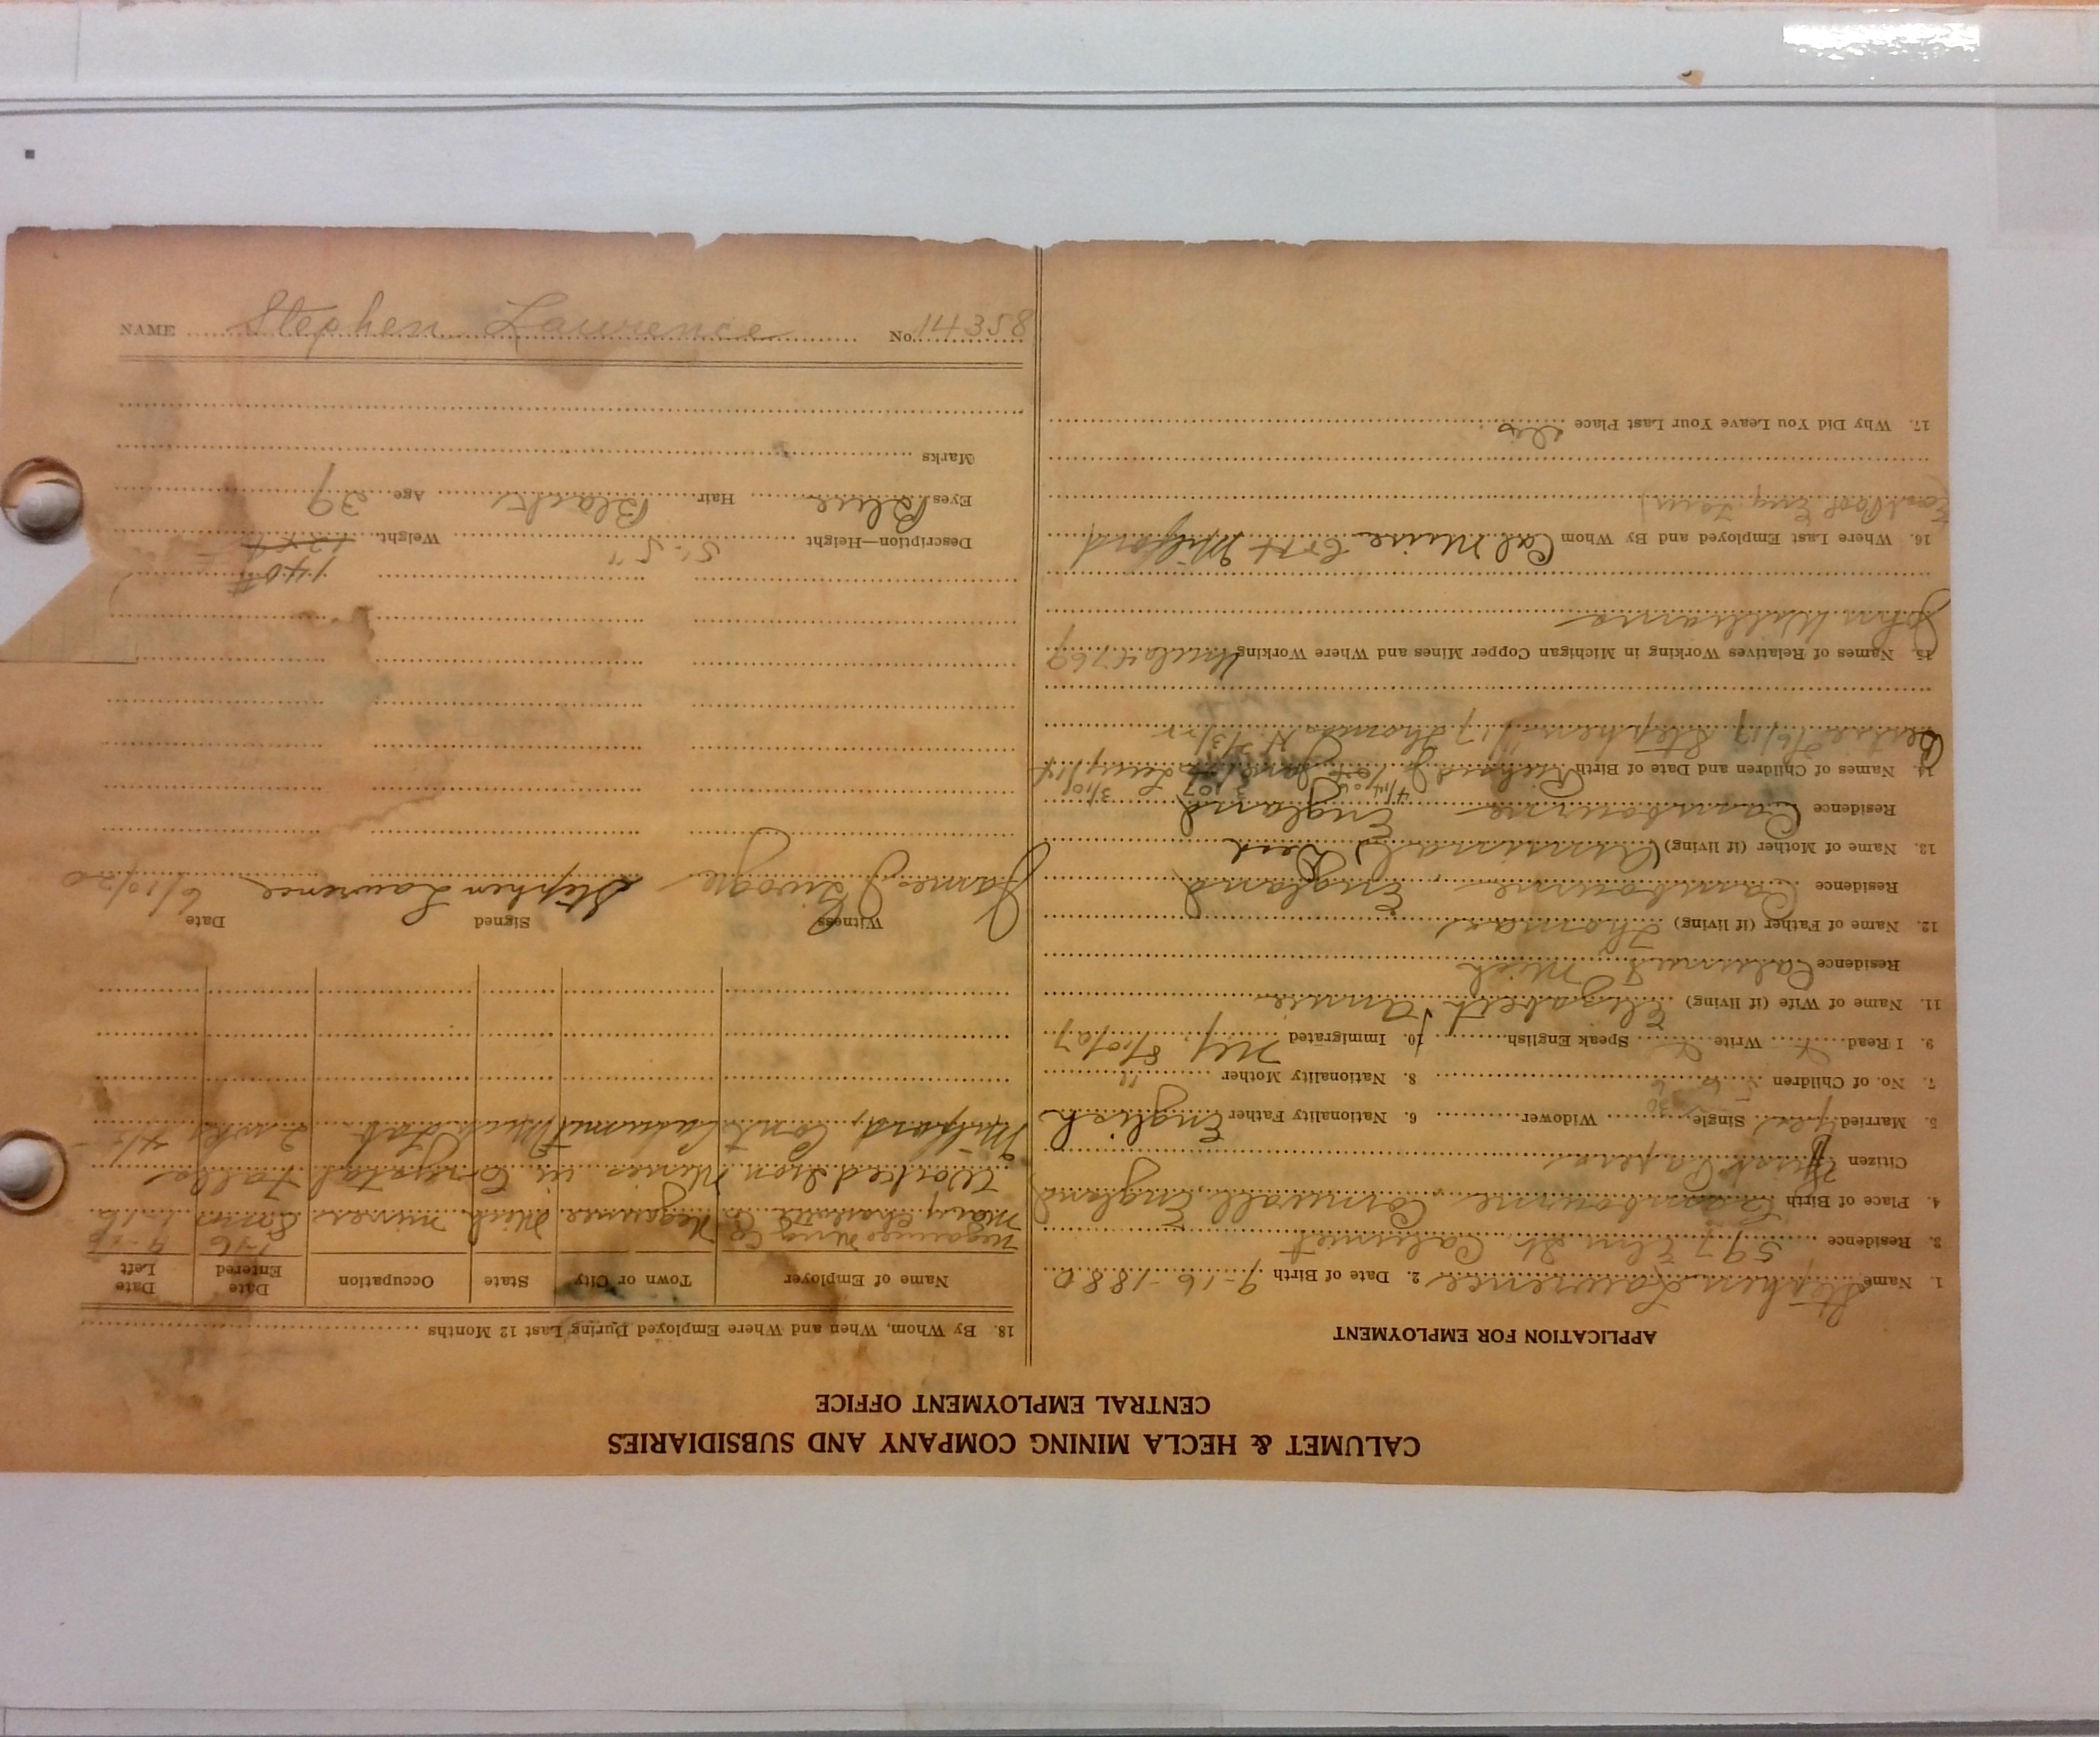 CALUMET & HECLA MINING COMPANY AND SUBSIDIARIES
CENTRAL EMPLOYMENT OFFICE
APPLICATION FOR EMPLOYMENT
1. Name Stephen Lawrence 2. Date of Birth 9-16-1880
3. Residence 597 Elm St. Calumet
4. Place of Birth Cambourne, Cornwall, England
Citizen First Papers
5. Married yes Single Widower 6. Nationality Father English
7. No. of Children 8. Nationality Mother "
9. I Read Write Speak English 10. Immigrated N.Y. 8/10/07
11. Name of Wife (if living) Elizabeth Annie
Residence Calumet Mich
12. Name of Father (if living) Thomas
Residence Cambourne, England
13. Name of Mother (if living) Dead
Residence Cambourne England
14. Names of Children and Date of Birth Richard J
Stephen Thomas
15. Names of Relatives Working in Michigan Copper Mines and Where Working
John Williams
16. Where Last Employed and By Whom Milford
17. Why Did You Leave Your Last Place
18. By Whom, When and Where Employed During Last 12 Months
Name of Employer Town or City State Occupation Date Entered Date Left
Negaunee Mich miner 1-16
Worked Iron Mines in Crystal Falls
Milford, Cont Calumet Mich Lab. 2 wks
Witness Signed Date
James Stephen Lawrence 6/10/20
140#
Description—Height 5'-5" Weight
Eyes Blue Hair Black Age 39
Marks
NAME Stephen Lawrence No. 14358